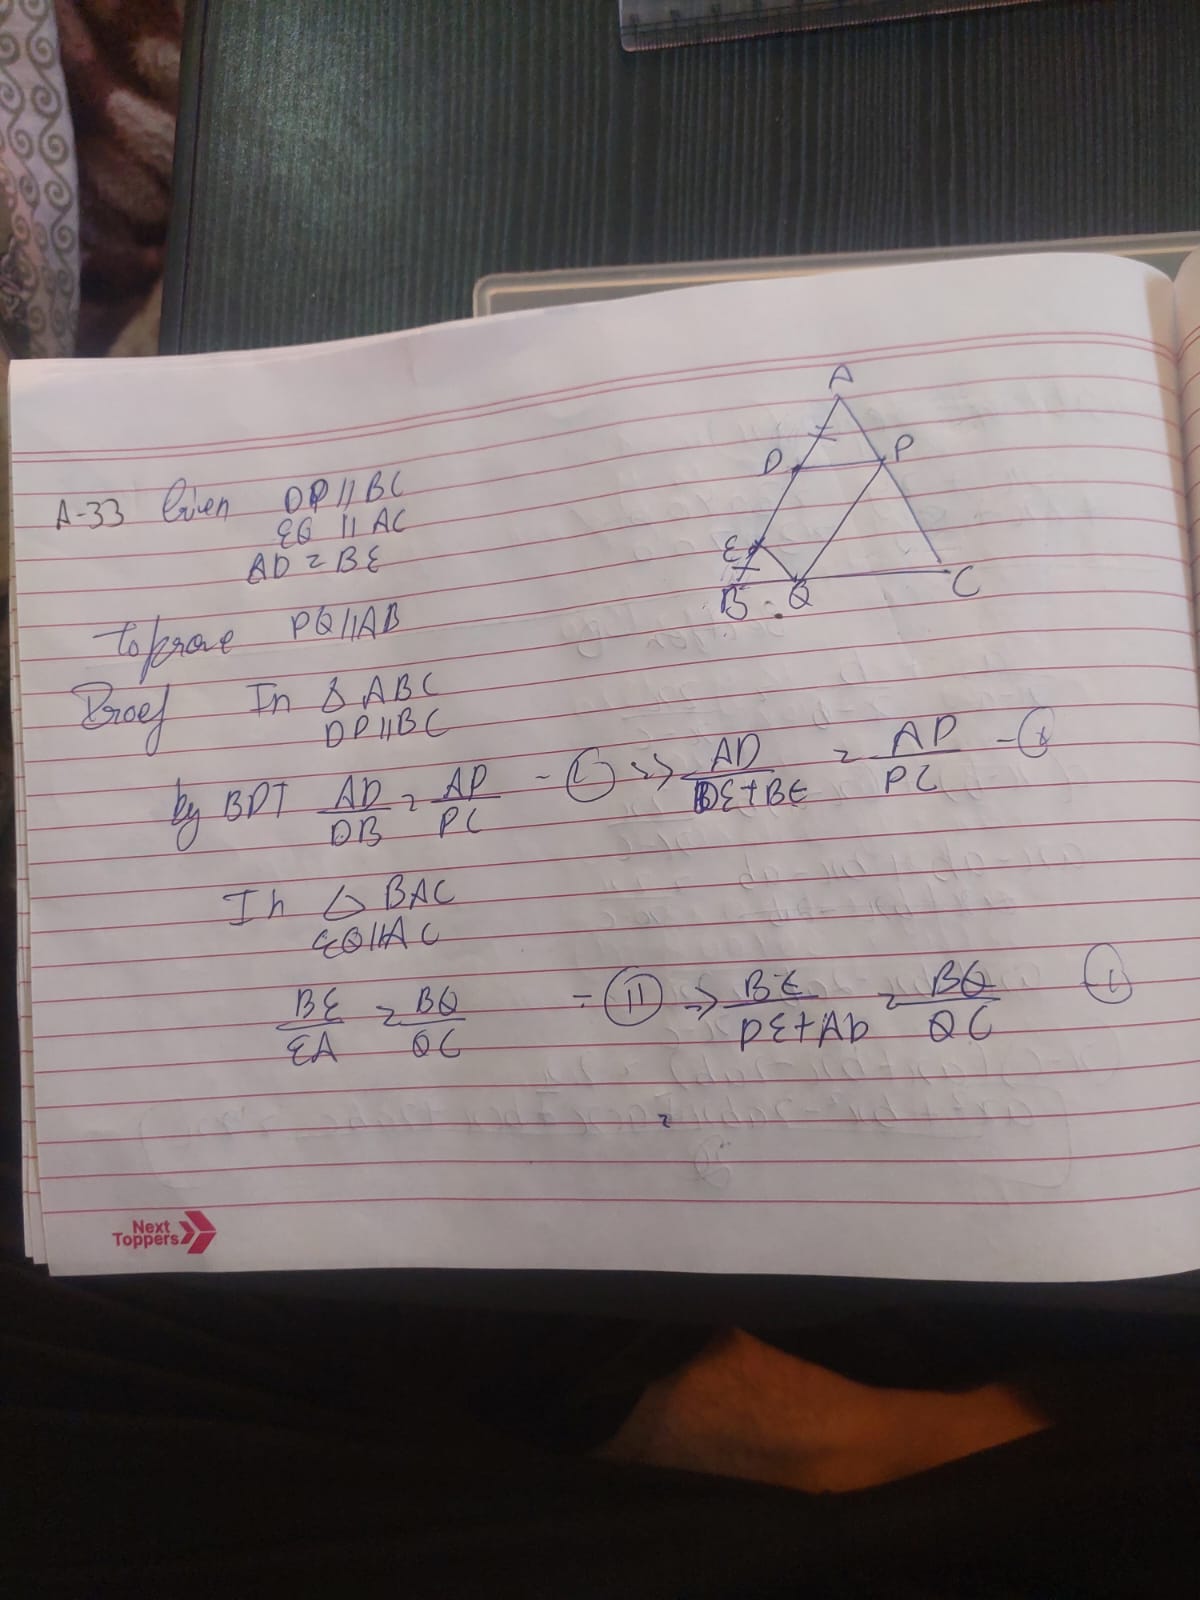 A
D P
E
B Q C
A-33 Given DP||BC
EQ || AC
AD = BE
To prove PQ||AB
Proof In Δ ABC
DP||BC
by BDT AD/DB = AP/PC - (I) => AD/DE+BE = AP/PC
In Δ BAC
EQ||AC
BE/EA = BQ/QC = (II) => BE/DE+AD = BQ/QC
=
Next
Toppers